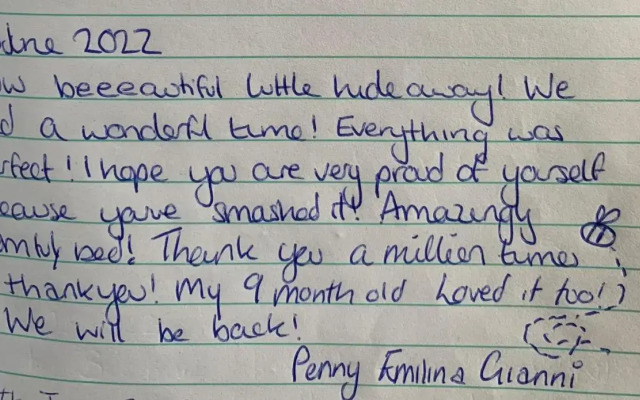 June 2022
w beeeautiful little hideaway! We
d a wonderfl time! Everything was
rfect! I hope you are very proud of yourself
ecause youve smashed it! Amazingy
omfy bed! Thank you a million times
thankyou! My 9 month old loved it too!)
We will be back!
Penny Emilina Gianni